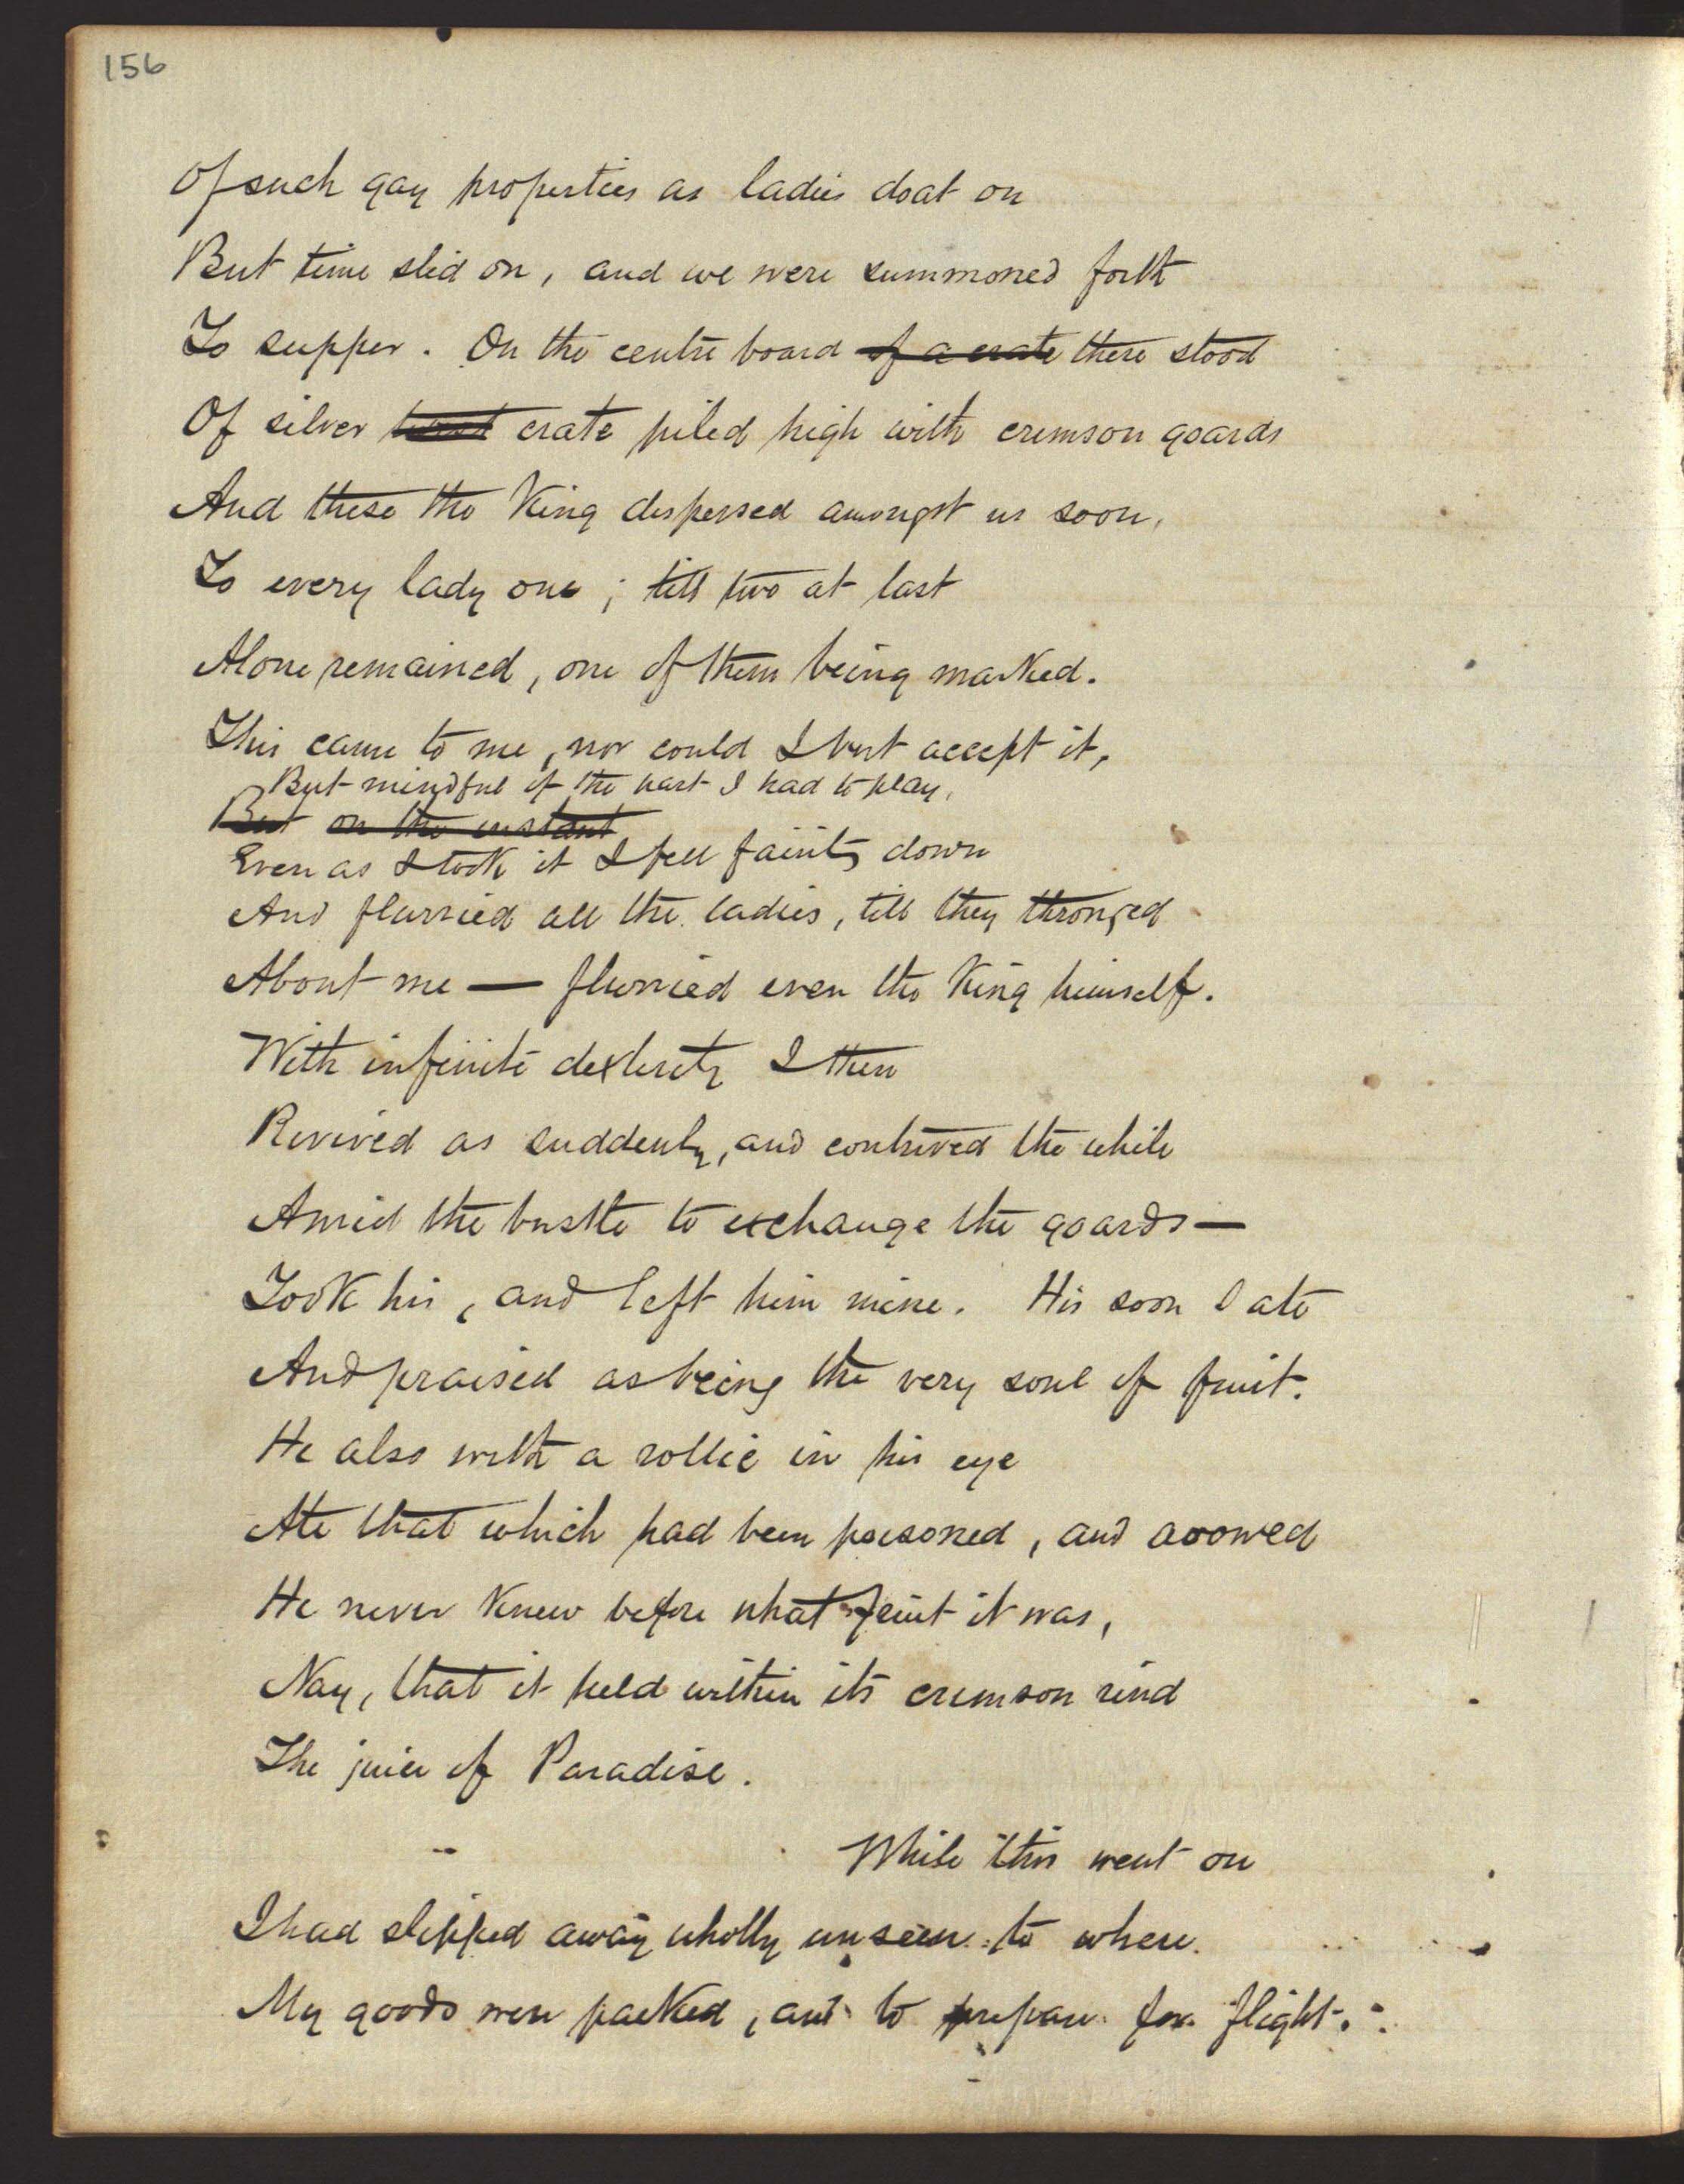 156
Of such gay properties as ladies doat on
But time slid on, and we were summoned forth
To supper. On the centre board of a crate there stood
Of silver crate piled high with crimson goards
And these the King dispersed amongst us soon,
To every lady one; till two at last
Alone remained, one of them being marked.
This came to me, nor could I but accept it,
But mindful of the part I had to play,
But on the instant
Even as I took it I fell faintly down
And flurried all the ladies, till they thronged
About me — flurried even the King himself.
With infinite dexterity I then
Revived as suddenly, and contrived the while
Amid the bustle to exchange the goards —
Took his, and left him mine. His soon I ate
And praised as being the very soul of fruit.
He also with a rollic in his eye
Ate that which had been poisoned, and avowed
He never knew before what fruit it was,
Nay, that it held within its crimson rind
The juice of Paradise.
While this went on
I had slipped away wholly unseen to where
My goods were packed, and to prepare for flight.